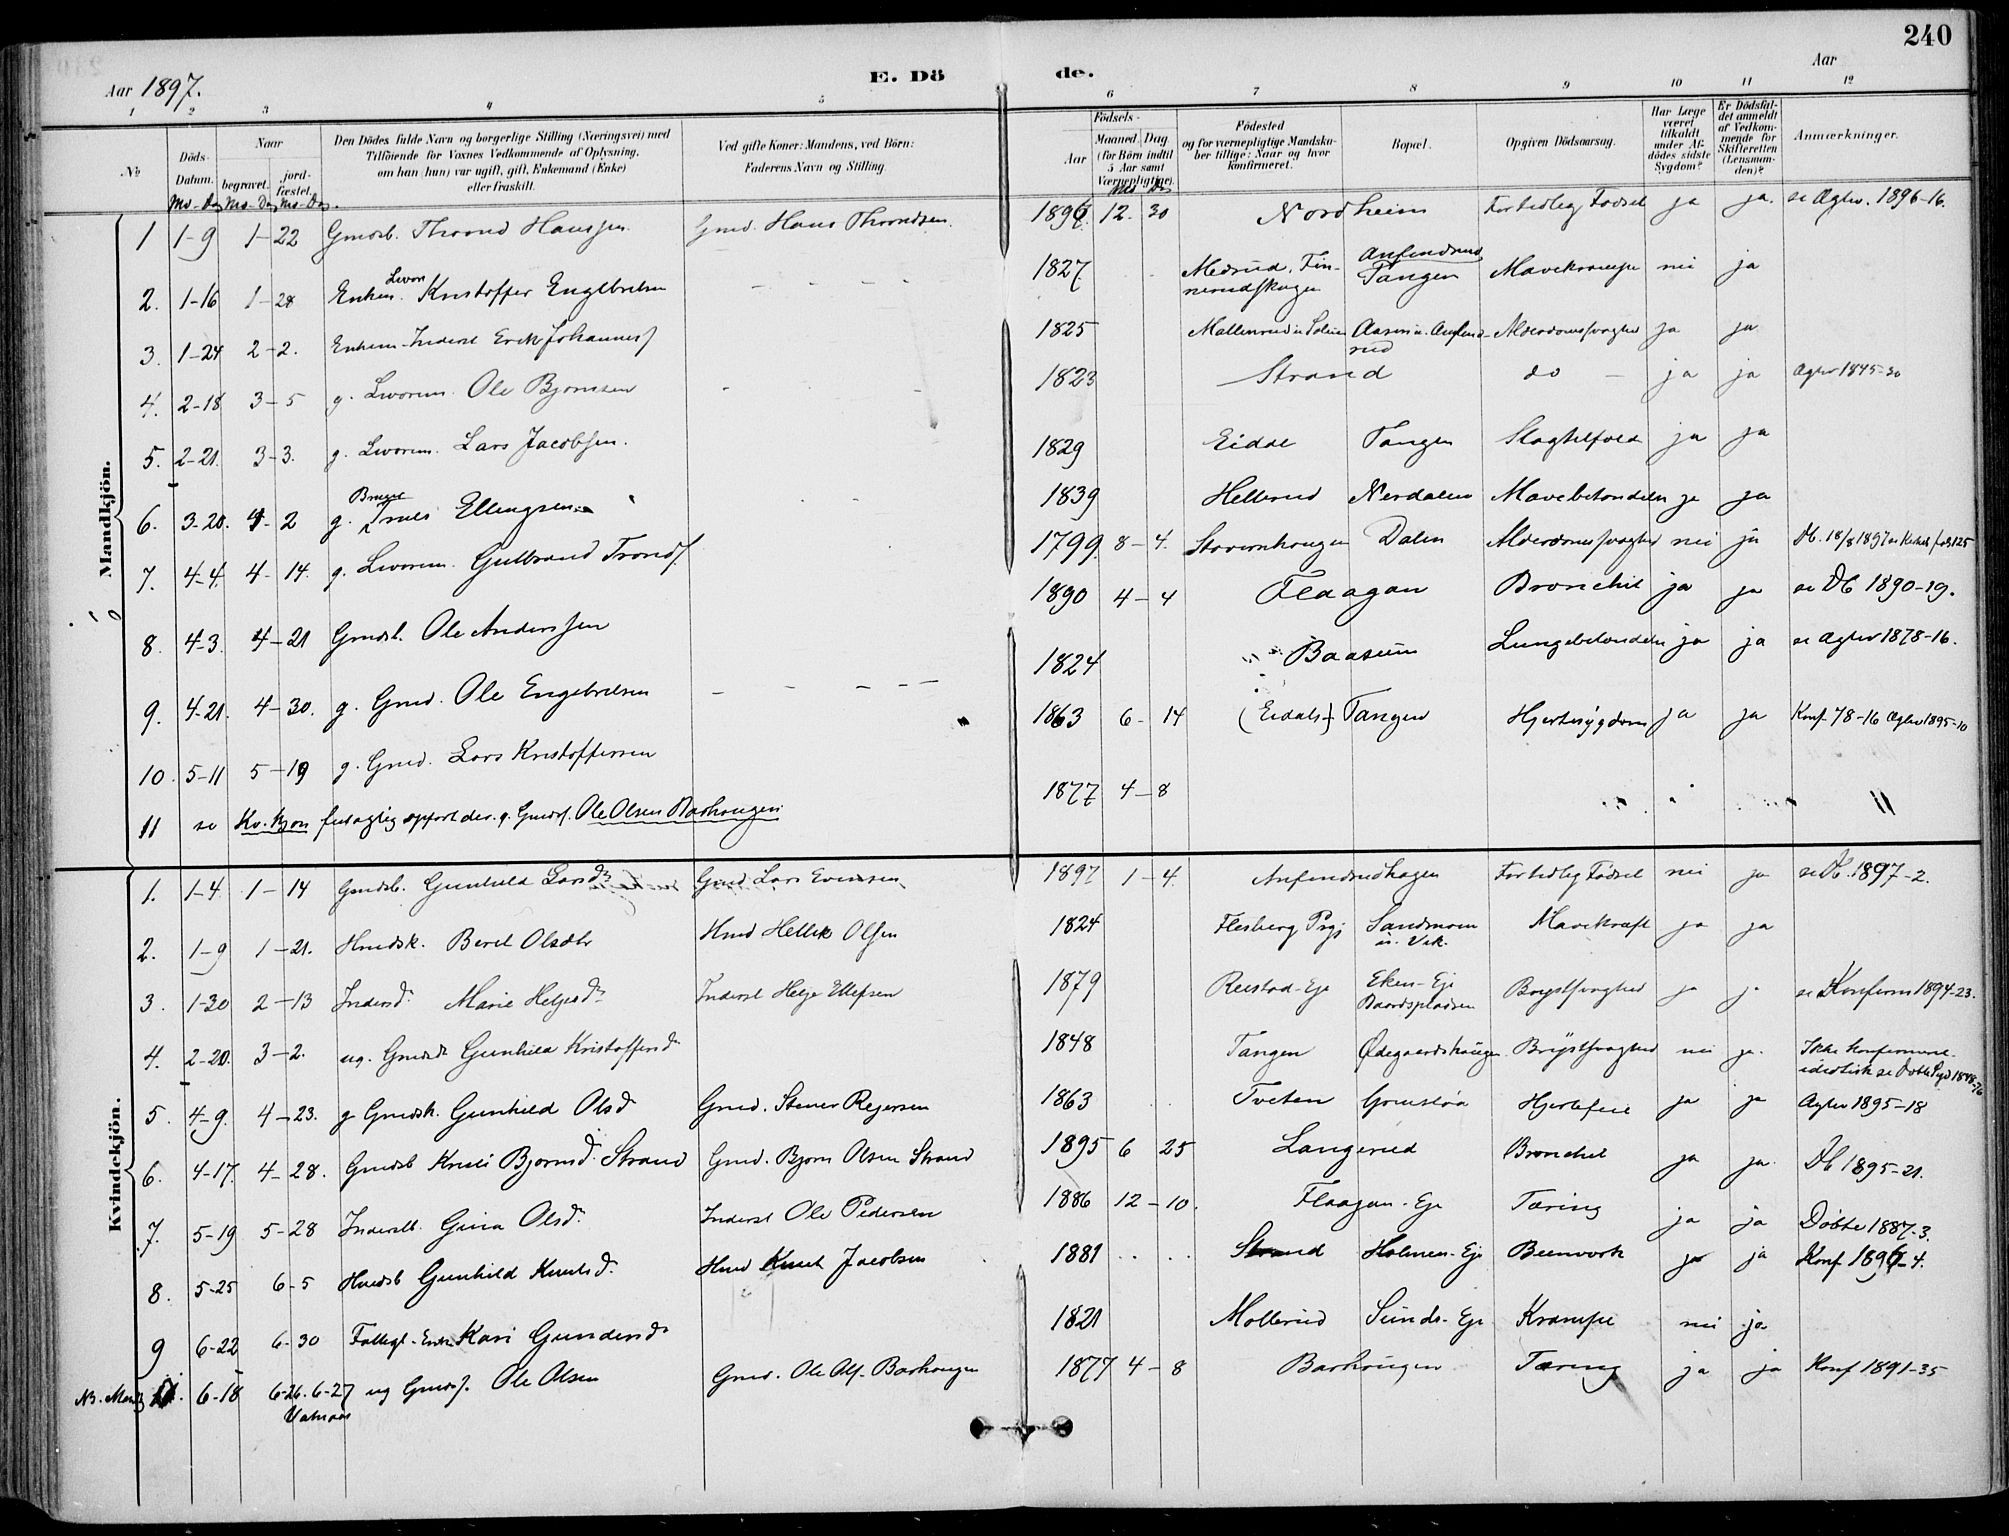 240
Aar 1897.
E. Dö
de.
Aar
1 2 3 4 5 6 7 8 9 10 11 12
No
Döds-Datum.
Naar
begravet.
jord-fæstet.
Den Dödes fulde Navn og borgerlige Stilling (Næringsvei) med Tilföiende for Voxnes Vedkommende af Oplysning, om han (hun) var ugift, gift, Enkemand (Enke) eller fraskilt.
Ved gifte Koner: Mandens, ved Börn: Faderens Navn og Stilling.
Födsels-
Aar
Maaned. Dag.
(for Börn indtil 5 Aar samt Værnepligtige).
Födested og for værnepligtige Mandskaber tillige: Naar og hvor konfirmeret.
Bopæl.
Opgiven Dödsaarsag.
Har Læge været tilkaldt under Afdödes sidste Sygdom?
Er Dödsfaldet anmeldt af Vedkommende for Skifteretten (Lensmanden)?
Anmærkninger.
Mo-Dag Mo-Dag Mo-Dag.
Mo Da
Mandkjön.
1 1-9 1-22 Gmdsb. Thrond Hanssen Gmd. Hans Throndsen. 1896 12. 30 Nordheim For tidlig Födsel ja ja. se Aghv. 1896-16.
2. 1-16 1-28 Enkem. Levor. Kristoffer Engebretsen 1827 Medrud, Finnerudskogen Anfindsrud Tangen Mavekrampe nei ja
3. 1-24 2-2. Enkem-Inderst Erik Johanness 1825 Mallerud u. Solem Aasen u. Anfindrud Alderdomssvaghed ja ja
4. 2-18 3-5 g. Levorm. Ole Bjornsen 1823 Strand do ja ja Aghv 1845-30
5. 2-21. 3-3. g. Levorm. Lars Jacobsen. 1829 Eidal Tangen Slagtilfæld ja ja
6. 3-20. 4-2 g. Bruger Truls Ellingsen 1839 Hellerud Nerdalen Mavebetændels ja ja
7. 4-4. 4-14. g. Levorm. Gulbrand Tronds. 1799 8-4. Stavernhaugen Dalen Alderdomssvaghed nei ja
8. 4-3. 4-21 Gmdsb. Ole Anderssen 1890 4-4 Flaagan Bronchit ja ja se Db 1890-19.
9. 4-21. 4-30. g. Gmd. Ole Engebretsen 1824 Baasum Lungebetændels ja ja se Aghv 1878-16.
10. 5-11 5-19 g. Gmd. Lars Kristoffersen 1863 6-14 (Eidals-) Tangen Hjertesygdom ja ja Konf 78-16 Aghv 1895-10
11 se Kv. Kjøn feilagtig opført der. g. Gmds. Ole Olsen Barhougen 1877 4-8
11
Kvindekjön.
1. 1-4. 1-14 Gmdsb. Gunhild Larsdr Gmd Lars Evensen 1897 1-4. Anfindsrudhagen For tidlig Födsel nei ja se Db. 1897-2.
2. 1-9 1-21. Hmdsk. Beret Olsdtr Hmd Hellik Olsen 1824 Flesberg Prgj Sandmoen u. Vek. Mavekræft ja ja
3. 1-30 2-13 Indersd. Marie Helgesdr Inderst Helge Ellefsen 1879 Rustad-Eje Eken-Eje Baardspladsen Brystsvaghed ja j. se Konfirm 1894-23.
4. 2-20. 3-2. ug. Gmdsdr Gunhild Kristoffersdr 1848 Tangen Ødegaardshaugen Brystsvaghed nei ja. Ikke konfirmeret-idiotisk se Døbte Pgs 1848-76
5. 4-9. 4-23. g Gmdsk. Gunhild Olsd Gmd. Stener Regersen 1863 Tveten Hjertefeil ja ja Aghv 1895-18
6. 4-17. 4-28. Gmdsb Kristi Bjornsd. Strand Gmd. Bjorn Olsen Strand 1895 6 25 Langerud Bronchit ja ja. Db 1895-21.
7. 5-19 5-28 Inderstb. Gina Olsd. Inderst Ole Pedersen 1886 12-10. Flaagan-Eje Tæring ja ja Döbte 1887-3.
8. 5-25 6-5 Hmdsb Gunhild Knutsd. Hmd Knut Jacobsen 1881 Strand Holmen-Eje Beenværk ja ja Konf 1896-4.
9 6-22 6-30 Fattigl-Enke Kari Gundersdr 1821 Mollerud Sunds-Eje Krampe nei ja
NB. Mandkj 11. 6-18 6-26. 6-27 ug Gmds. Ole Olsen Gmd. Ole Ols. Barhougen 1877 4-8 Barhougen Tæring ja ja Konf 1891-35